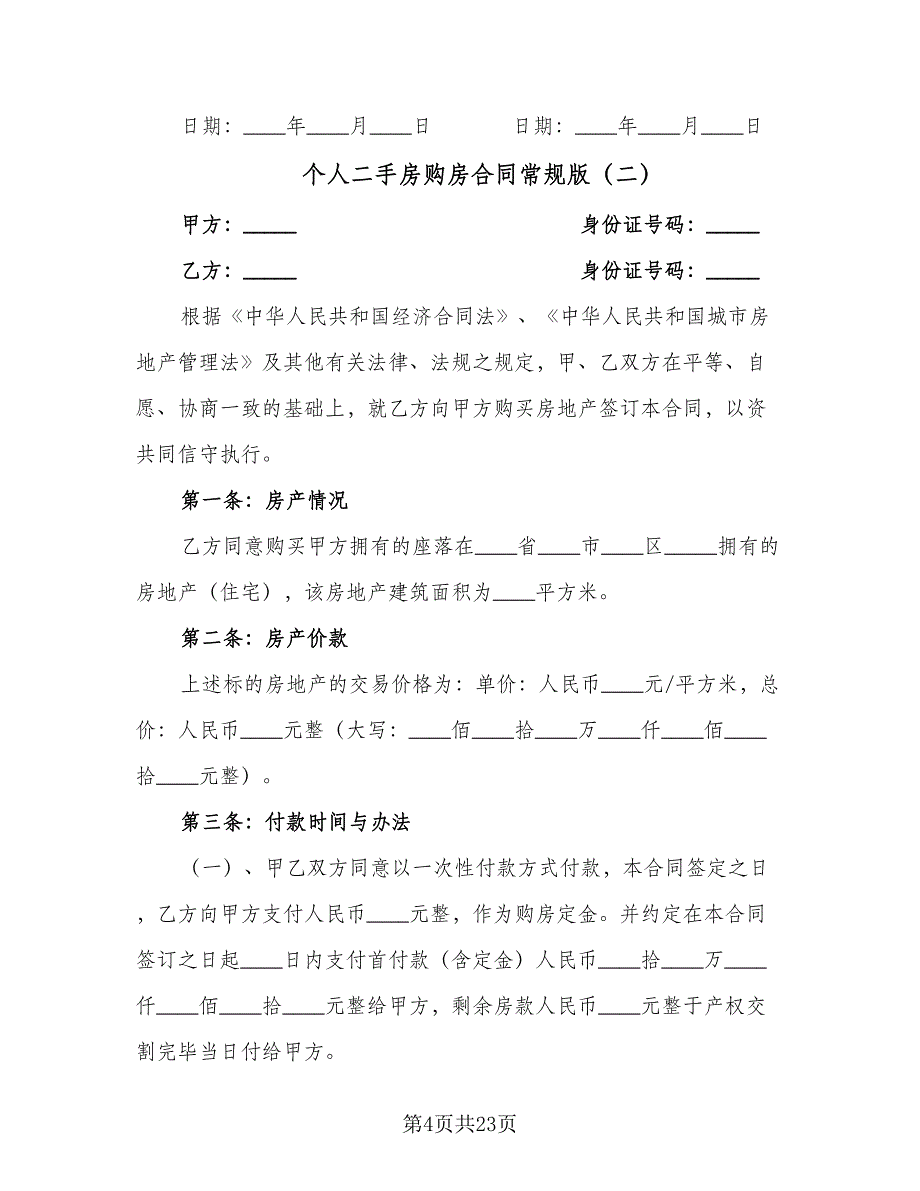 日期：____年____月____日　　　　日期：____年____月____日
个人二手房购房合同常规版（二）
甲方：_____　　　　　　　　　　　　　身份证号码：_____
乙方：_____　　　　　　　　　　　　　身份证号码：_____
根据《中华人民共和国经济合同法》、《中华人民共和国城市房
地产管理法》及其他有关法律、法规之规定，甲、乙双方在平等、自
愿、协商一致的基础上，就乙方向甲方购买房地产签订本合同，以资
共同信守执行。
第一条：房产情况
乙方同意购买甲方拥有的座落在____省____市____区_____拥有的
房地产（住宅），该房地产建筑面积为____平方米。
第二条：房产价款
上述标的房地产的交易价格为：单价：人民币____元/平方米，总
价：人民币____元整（大写：____佰____拾____万____仟____佰____
拾____元整）。
第三条：付款时间与办法
（一）、甲乙双方同意以一次性付款方式付款，本合同签定之日
，乙方向甲方支付人民币____元整，作为购房定金。并约定在本合同
签订之日起____日内支付首付款（含定金）人民币____拾____万____
仟____佰____拾____元整给甲方，剩余房款人民币____元整于产权交
割完毕当日付给甲方。
第4页共23页